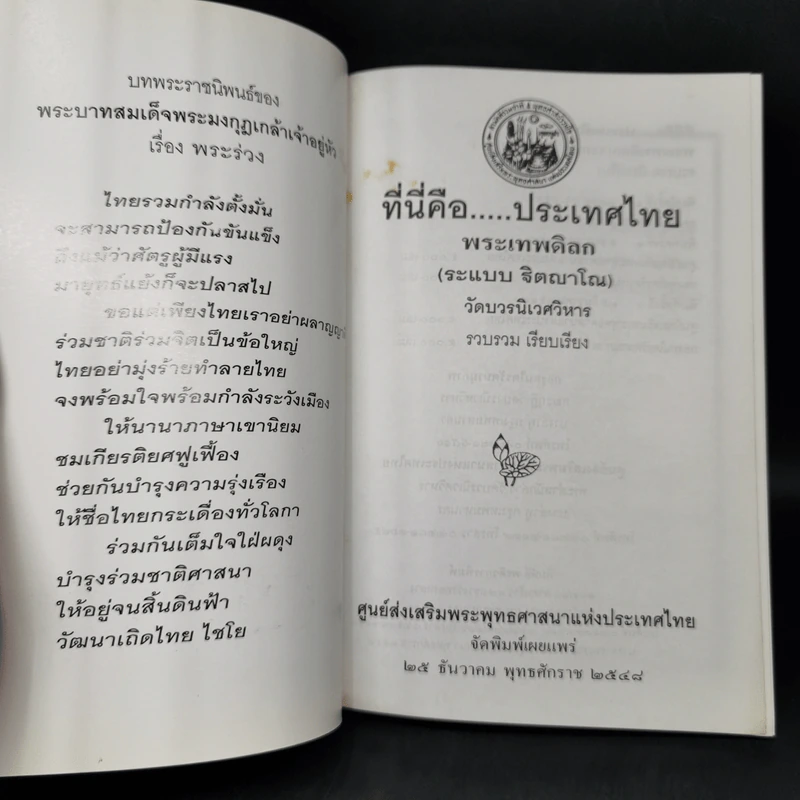 บทพระราชนิพนธ์ของ
พระบาทสมเด็จพระมงกุฎเกล้าเจ้าอยู่หัว
เรื่อง พระร่วง
ไทยรวมกำลังตั้งมั่น
จะสามารถป้องกันขันแข็ง
ถึงแม้ว่าศัตรูผู้มีแรง
มายุทธ์แย้งก็จะปลาสไป
ขอแต่เพียงไทยเราอย่าผลาญญาติ
ร่วมชาติร่วมจิตเป็นข้อใหญ่
ไทยอย่ามุ่งร้ายทำลายไทย
จงพร้อมใจพร้อมกำลังระวังเมือง
ให้นานาภาษาเขานิยม
ชมเกียรติยศฟูเฟื้อง
ช่วยกันบำรุงความรุ่งเรือง
ให้ชื่อไทยกระเดื่องทั่วโลกา
ร่วมกันเต็มใจใฝ่ผดุง
บำรุงร่วมชาติศาสนา
ให้อยู่จนสิ้นดินฟ้า
วัฒนาเถิดไทย ไชโย
ที่นี่คือ.....ประเทศไทย
พระเทพดิลก
(ระแบบ ฐิตญาโณ)
วัดบวรนิเวศวิหาร
รวบรวม เรียบเรียง
ศูนย์ส่งเสริมพระพุทธศาสนาแห่งประเทศไทย
จัดพิมพ์เผยแพร่
๒๕ ธันวาคม พุทธศักราช ๒๕๔๘